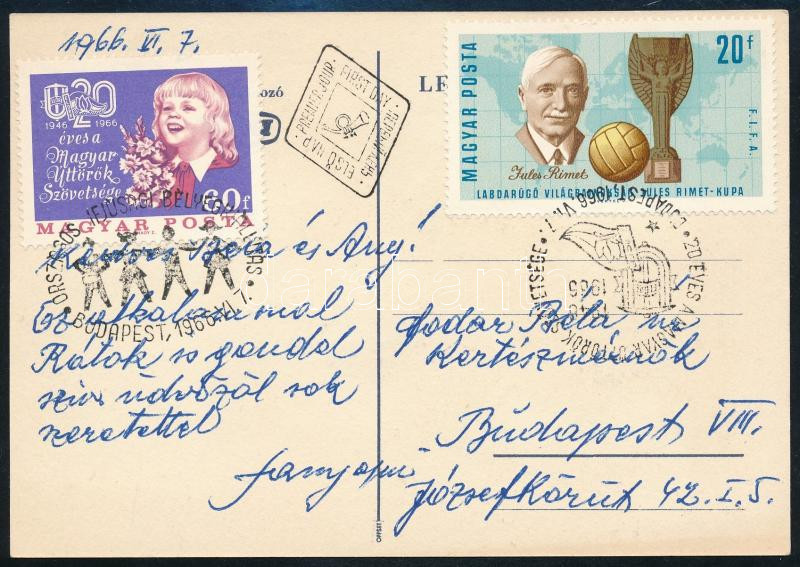 1966. VI. 7.
20
1946 1966
éves a
Magyar
Úttörők
Szövetsége
60f
MAGYAR POSTA
ORSZÁGOS IFJÚSÁGI BÉLYEGKIÁLLÍTÁS
BUDAPEST, 1966. VI. 7.
ozó
PREMIER JOUR · FIRST DAY · ПЕРВЫЙ ДЕНЬ · ELSŐ NAP
LE
MAGYAR POSTA
20f
F.I.F.A.
Jules Rimet
LABDARÚGÓ VILÁGBAJNOKSÁG JULES RIMET-KUPA
20 ÉVES A MAGYAR ÚTTÖRŐK SZÖVETSÉGE · BUDAPEST 1966. VI. 7.
1946
1966
Kedves Béla és Any!
Ez alkalommal
Rátok is gondol
szív üdvözöl sok
szeretettel
Fodor Béla
Kertészmérnök
Budapest VIII.
Józsefkörút 42. I. 5.
OFFSET
darabanth